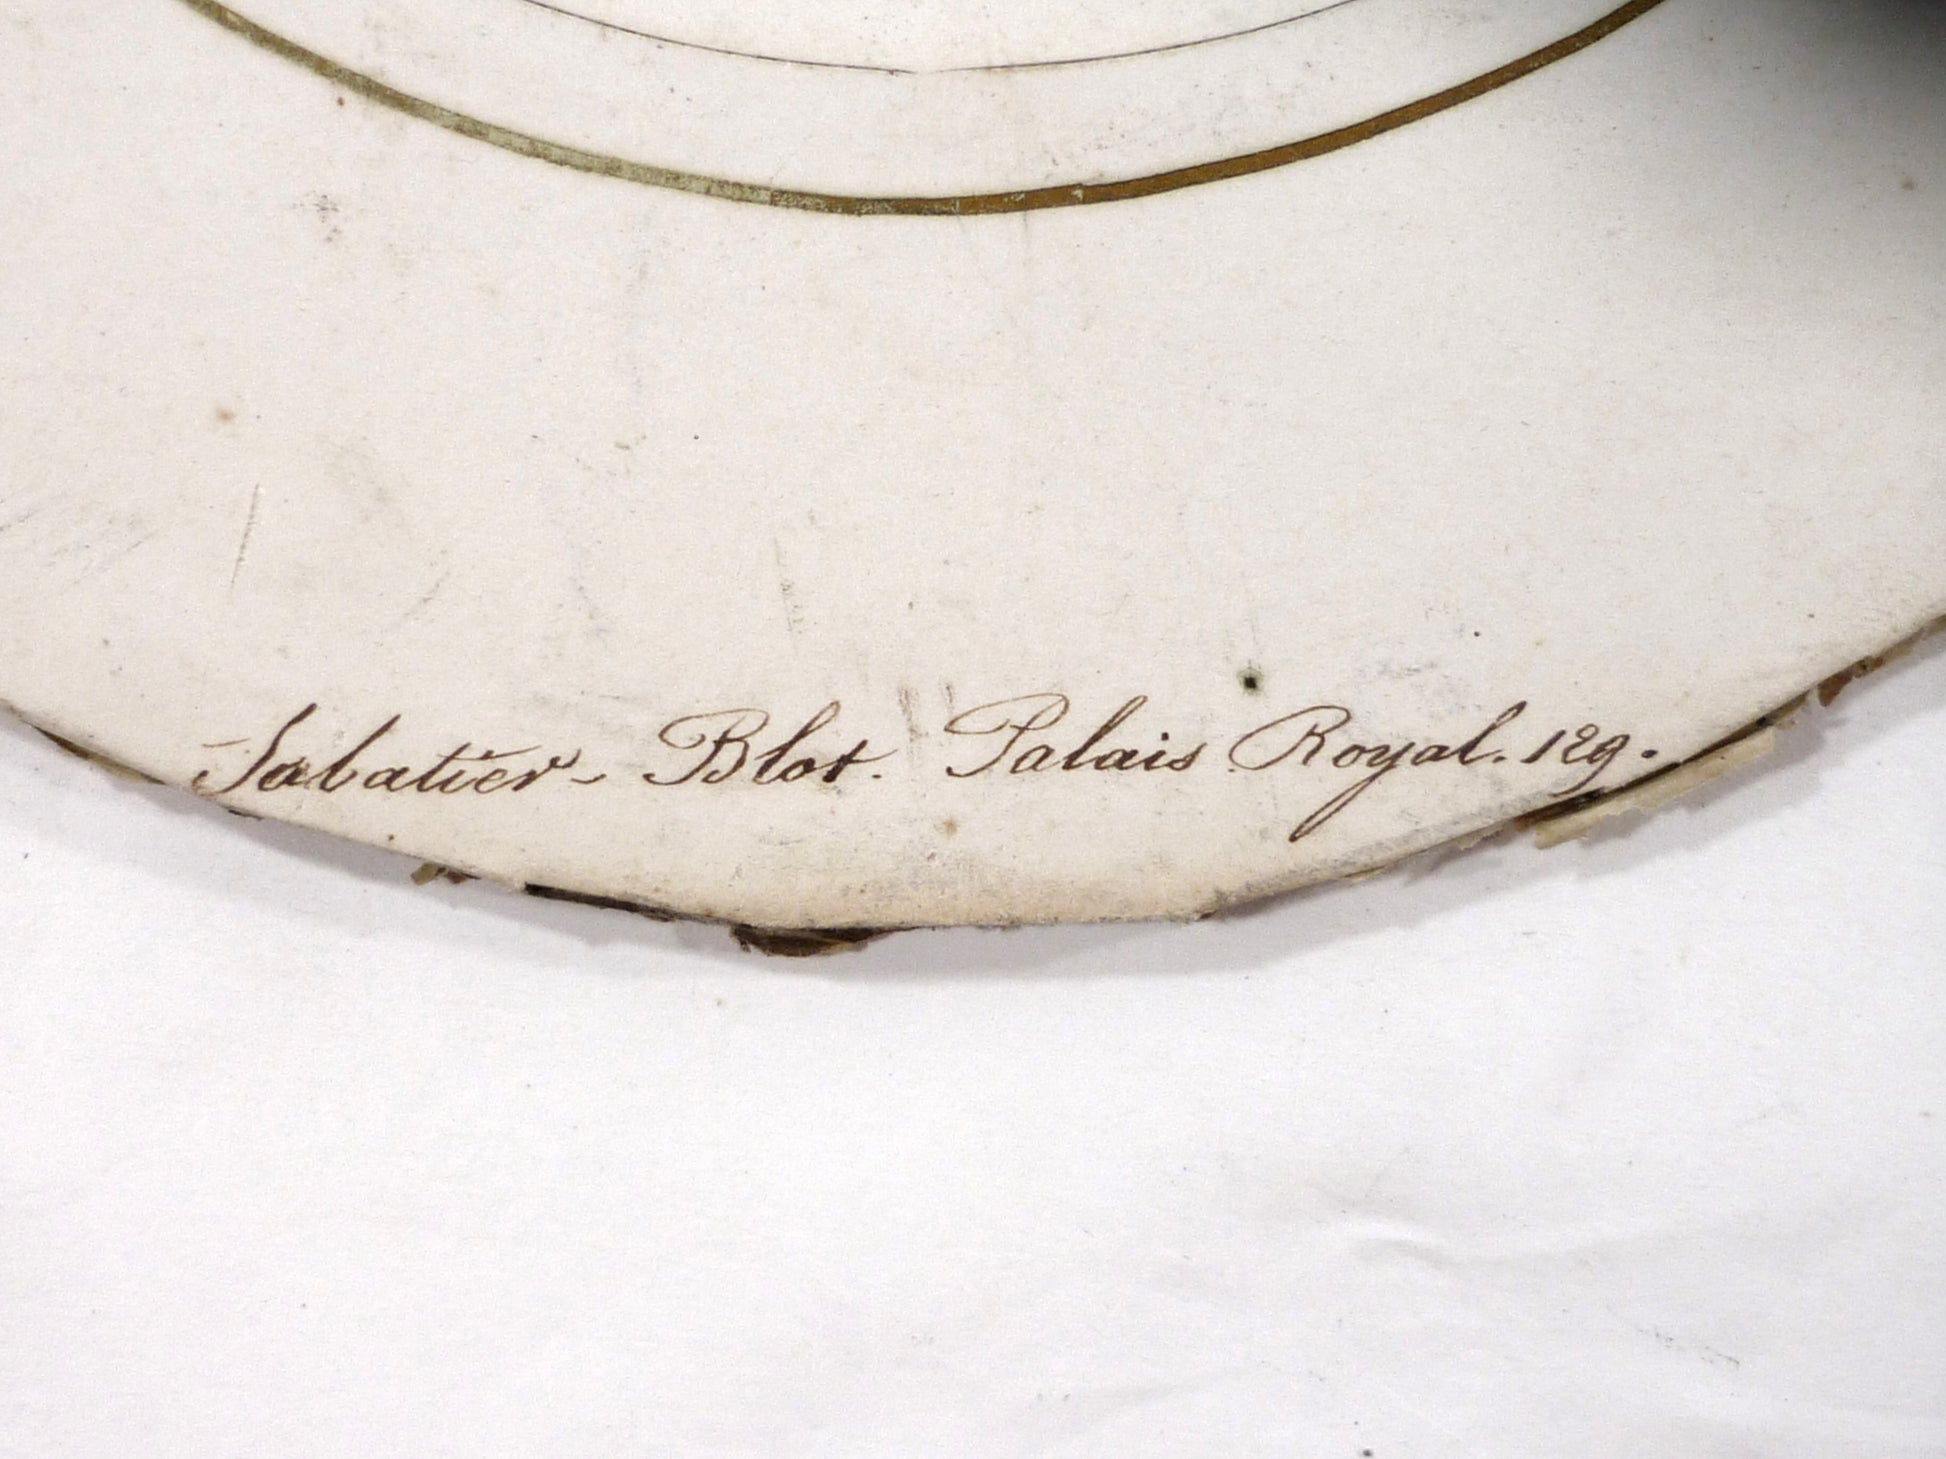 Sabatier-Blot. Palais Royal. 129.